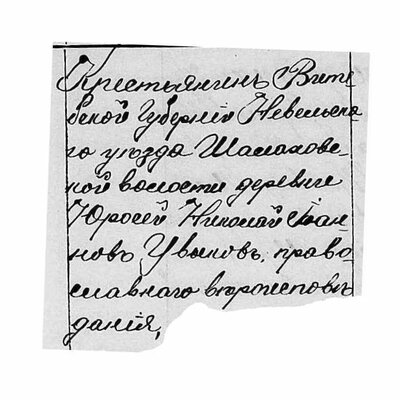 Крестьянинъ Вите
бской Губерніи Невельска
го уѣзда Шалахов-
ской волости деревни
Юросей Николай Іван-
новъ Увыковъ, право
славнаго вѣроисповѣ
данія,